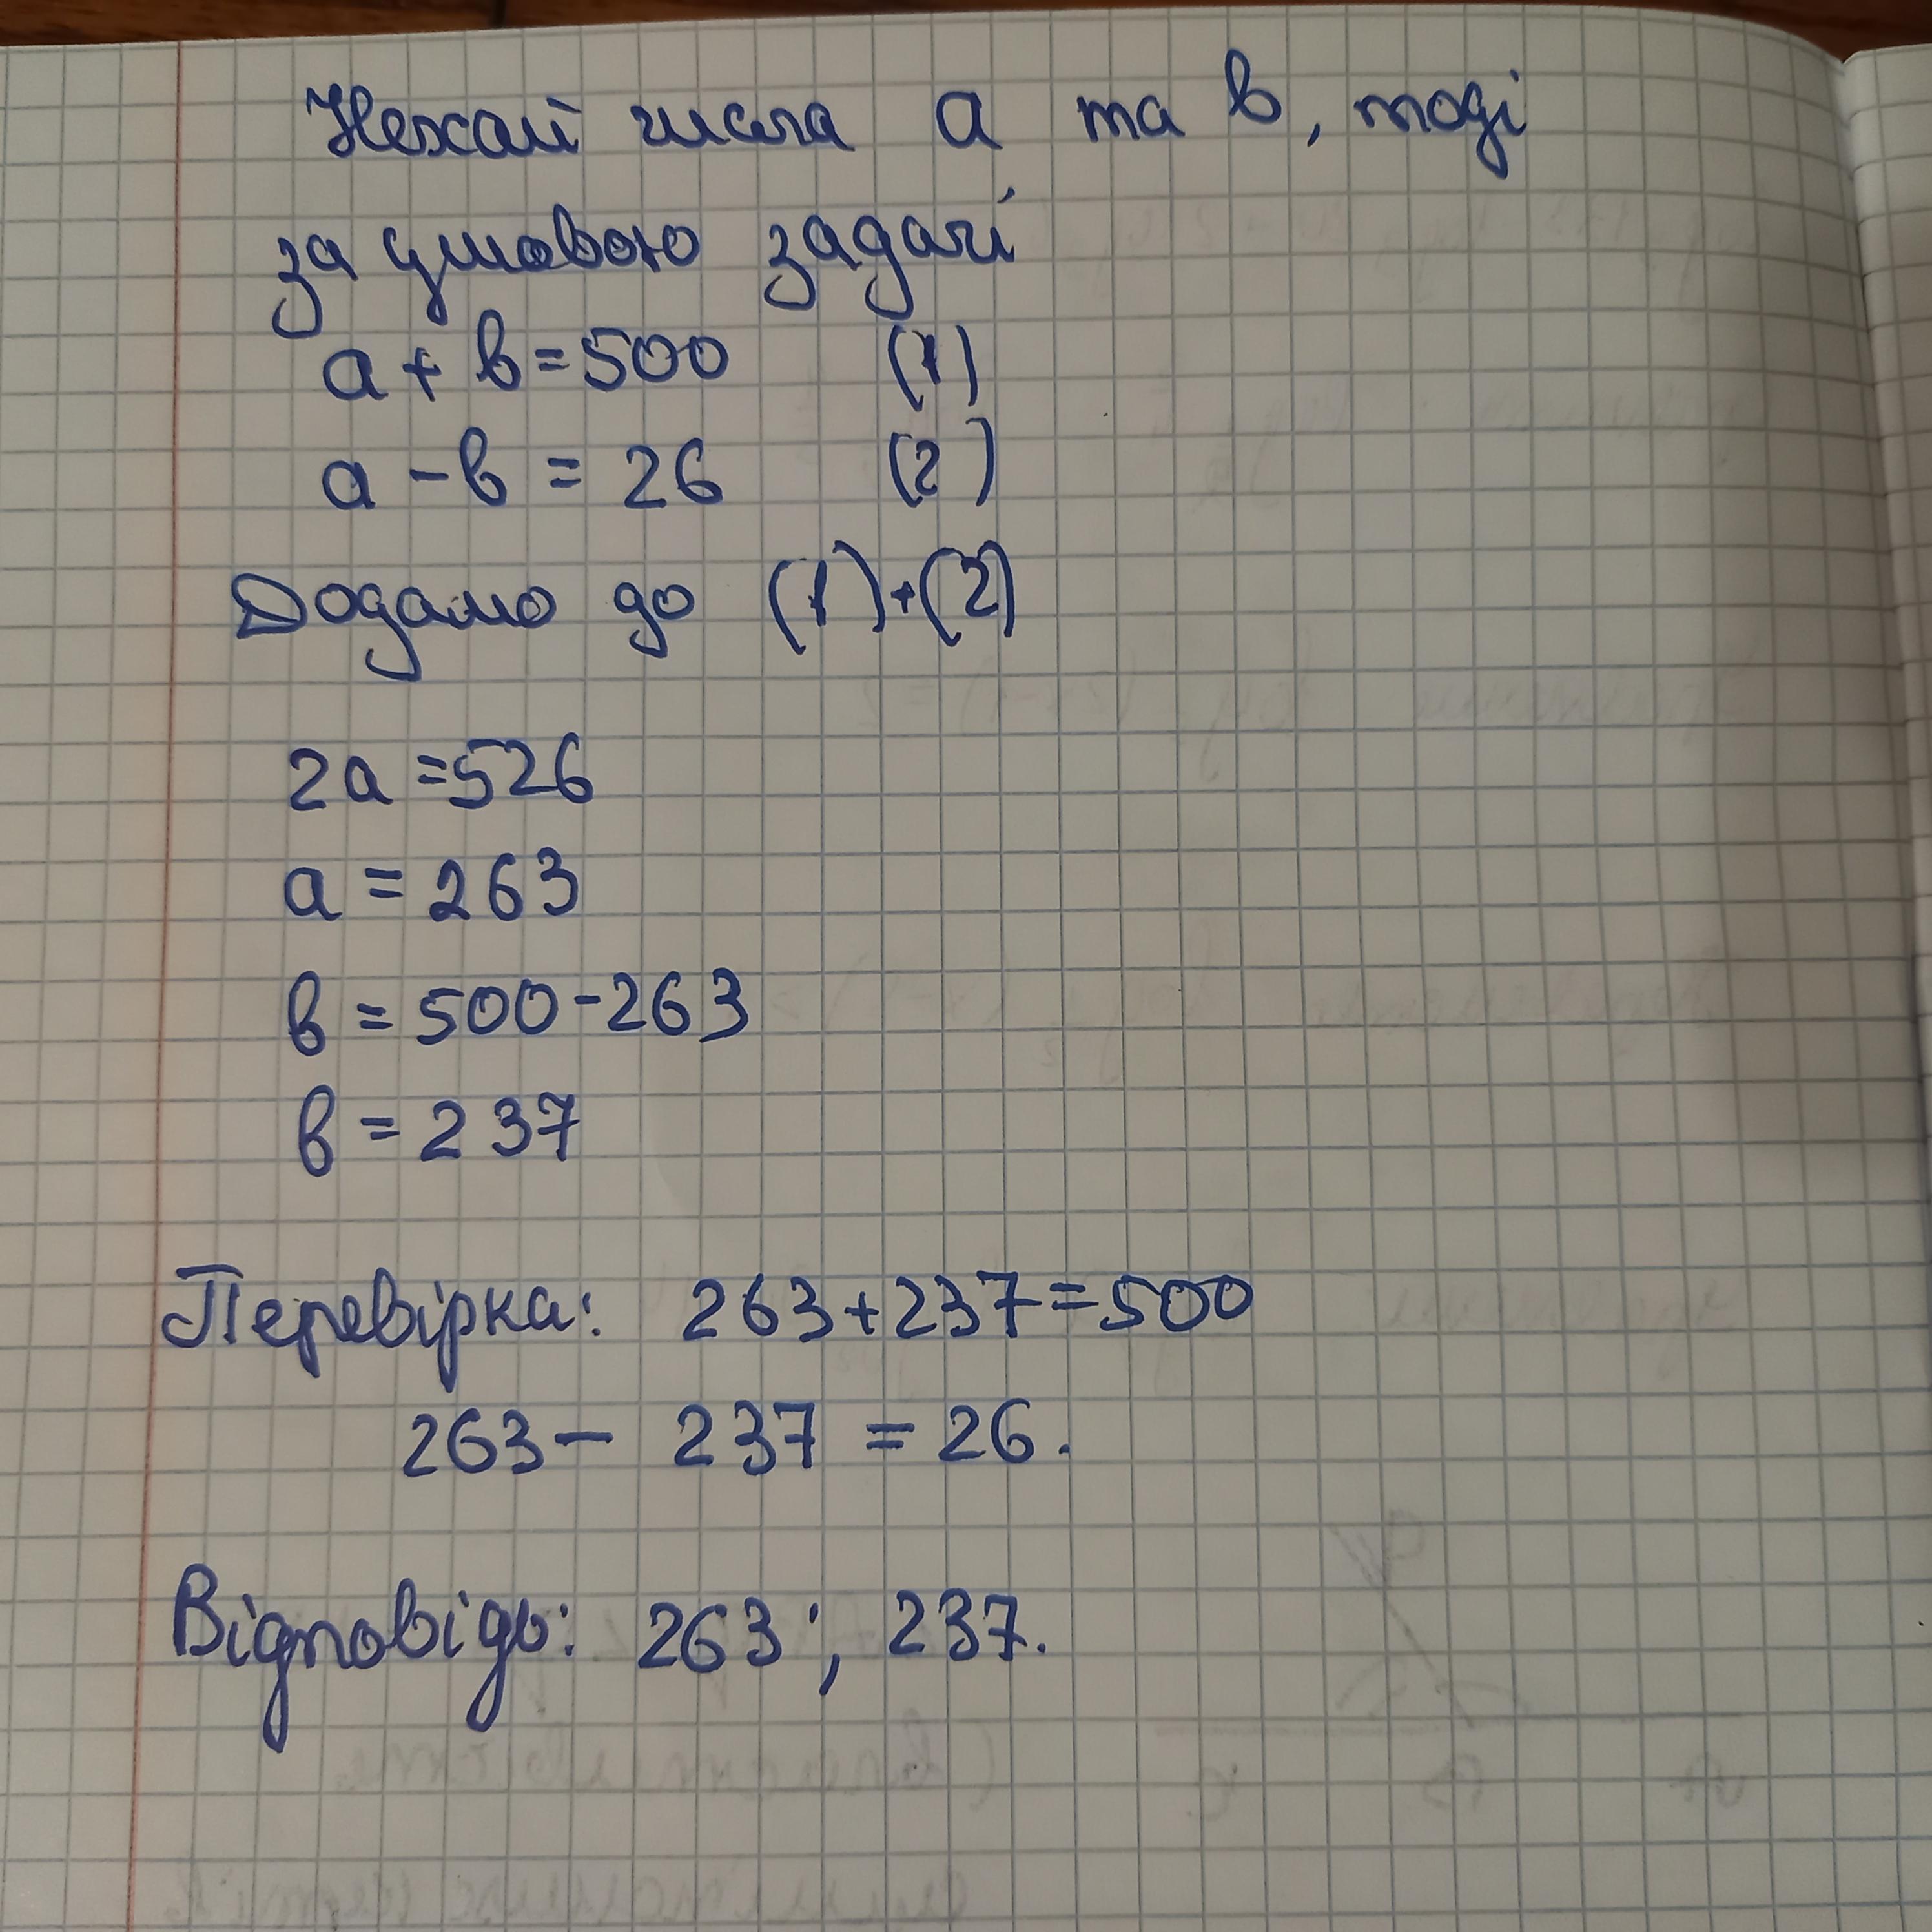 Нехай числа a та b, тоді
за умовою задачі
a + b = 500 (1)
a - b = 26 (2)
Додамо до (1)+(2)
2a = 526
a = 263
b = 500 - 263
b = 237
Перевірка: 263+237=500
263 - 237 = 26.
Відповідь: 263; 237.